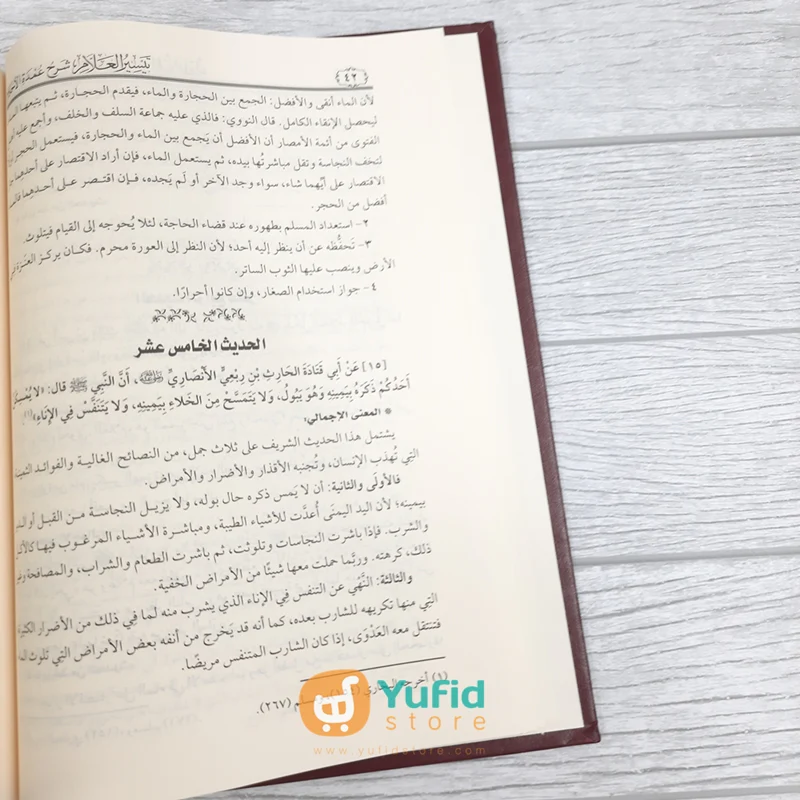 تيسير العلام، شرح عمدة
٤٢
لأن الماء أنقى والأفضل: الجمع بين الحجارة والماء، فيقدم الحجارة، ثم يتبعها
ليحصل الإنقاء الكامل. قال النووي: فالذي عليه جماعة السلف والخلف، وأجمع عليه
الفتوى من أئمة الأمصار أن الأفضل أن يَجمع بين الماء والحجارة، فيستعمل الحجر
لتخف النجاسة وتقل مباشرتُها بيده، ثم يستعمل الماء، فإن أراد الاقتصار على أحدهما
الاقتصار على أيِّهما شاء، سواء وجد الآخر أو لَم يَجده، فإن اقتصر على أحدهما
أفضل من الحجر.
٢- استعداد المسلم بطهوره عند قضاء الحاجة، لئلا يُحوجه إلى القيام فيتلوث.
٣- تَحفُّظه عن أن ينظر إليه أحد؛ لأن النظر إلى العورة محرم. فكان يركز العنَزة
الأرض وينصب عليها الثوب الساتر.
٤- جواز استخدام الصغار، وإن كانوا أحرارًا.
الحديث الخامس عشر
[١٥] عَنْ أَبِي قَتَادَةَ الْحَارِثِ بْنِ رِبْعِيٍّ الأَنْصَارِيِّ ﵁، أَنَّ النَّبِي ﷺ قال: «لا
أَحَدُكُمْ ذَكَرَهُ بِيَمِينِهِ وَهُوَ يَبُولُ، وَلا يَتَمَسَّحْ مِنَ الْخَلاءِ بِيَمِينِهِ، وَلا يَتَنَفَّسْ فِي الإِنَاءِ»(١).
● المعنى الإجمالي:
يشتمل هذا الحديث الشريف على ثلاث جمل، من النصائح الغالية والفوائد
التي تُهذب الإنسان، وتُجنبه الأقذار والأضرار والأمراض.
فالأولَى والثانية: أن لا يَمس ذكره حال بوله، ولا يزيل النجاسة من القبل أو
بيمينه؛ لأن اليد اليمنَى أُعدَّت للأشياء الطيبة، ومباشرة الأشياء المرغوب فيها
والشرب. فإذا باشرت النجاسات وتلوثت، ثم باشرت الطعام والشراب، والمصافحة
ذلك، كرهته. وربَّما حملت معها شيئًا من الأمراض الخفية.
والثالثة: النَّهْي عن التنفس فِي الإناء الذي يشرب منه لما في ذلك من الأضرار
التي منها تكريهه للشارب بعده، كما أنه قد يَخرج من أنفه بعض الأمراض التي تلوث
فتنتقل معه العَدْوَى، إذا كان الشارب المتنفس مريضًا.
(١) أخرجه البخاري (٢٦٧).
Yufid
store
www.yufidstore.com